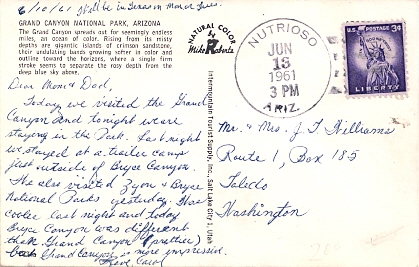 6/10/61 Will be in Texas on Mon or Tues.
GRAND CANYON NATIONAL PARK, ARIZONA
The Grand Canyon spreads out for seemingly endless
miles, an ocean of color. Rising from its misty
depths are gigantic islands of crimson sandstone,
their undulating bands growing softer in color and
outline toward the horizons, where a single firm
stroke seems to separate the rosy depth from the
deep blue sky above.
Dear Mom & Dad,
Today we visited the Grand
Canyon and tonight we are
staying in the Park. Last night
we stayed at a trailer camp
just outside of Bryce Canyon.
We also visited Zyon & Bryce
National Parks yesterday. Was
cooler last night and today
Bryce Canyon was different
than Grand Canyon (prettier)
but Grand Canyon is more impressive.
Love, Carol
NATURAL COLOR
by
Mike Roberts
Intermountain Tourist Supply, Inc., Salt Lake City 1, Utah
NUTRIOSO
JUN
13
1961
3 PM
ARIZ.
U.S. POSTAGE 3¢
LIBERTY
Mr. & Mrs. J. T. Williams
Route 1, Box 185
Toledo
Washington